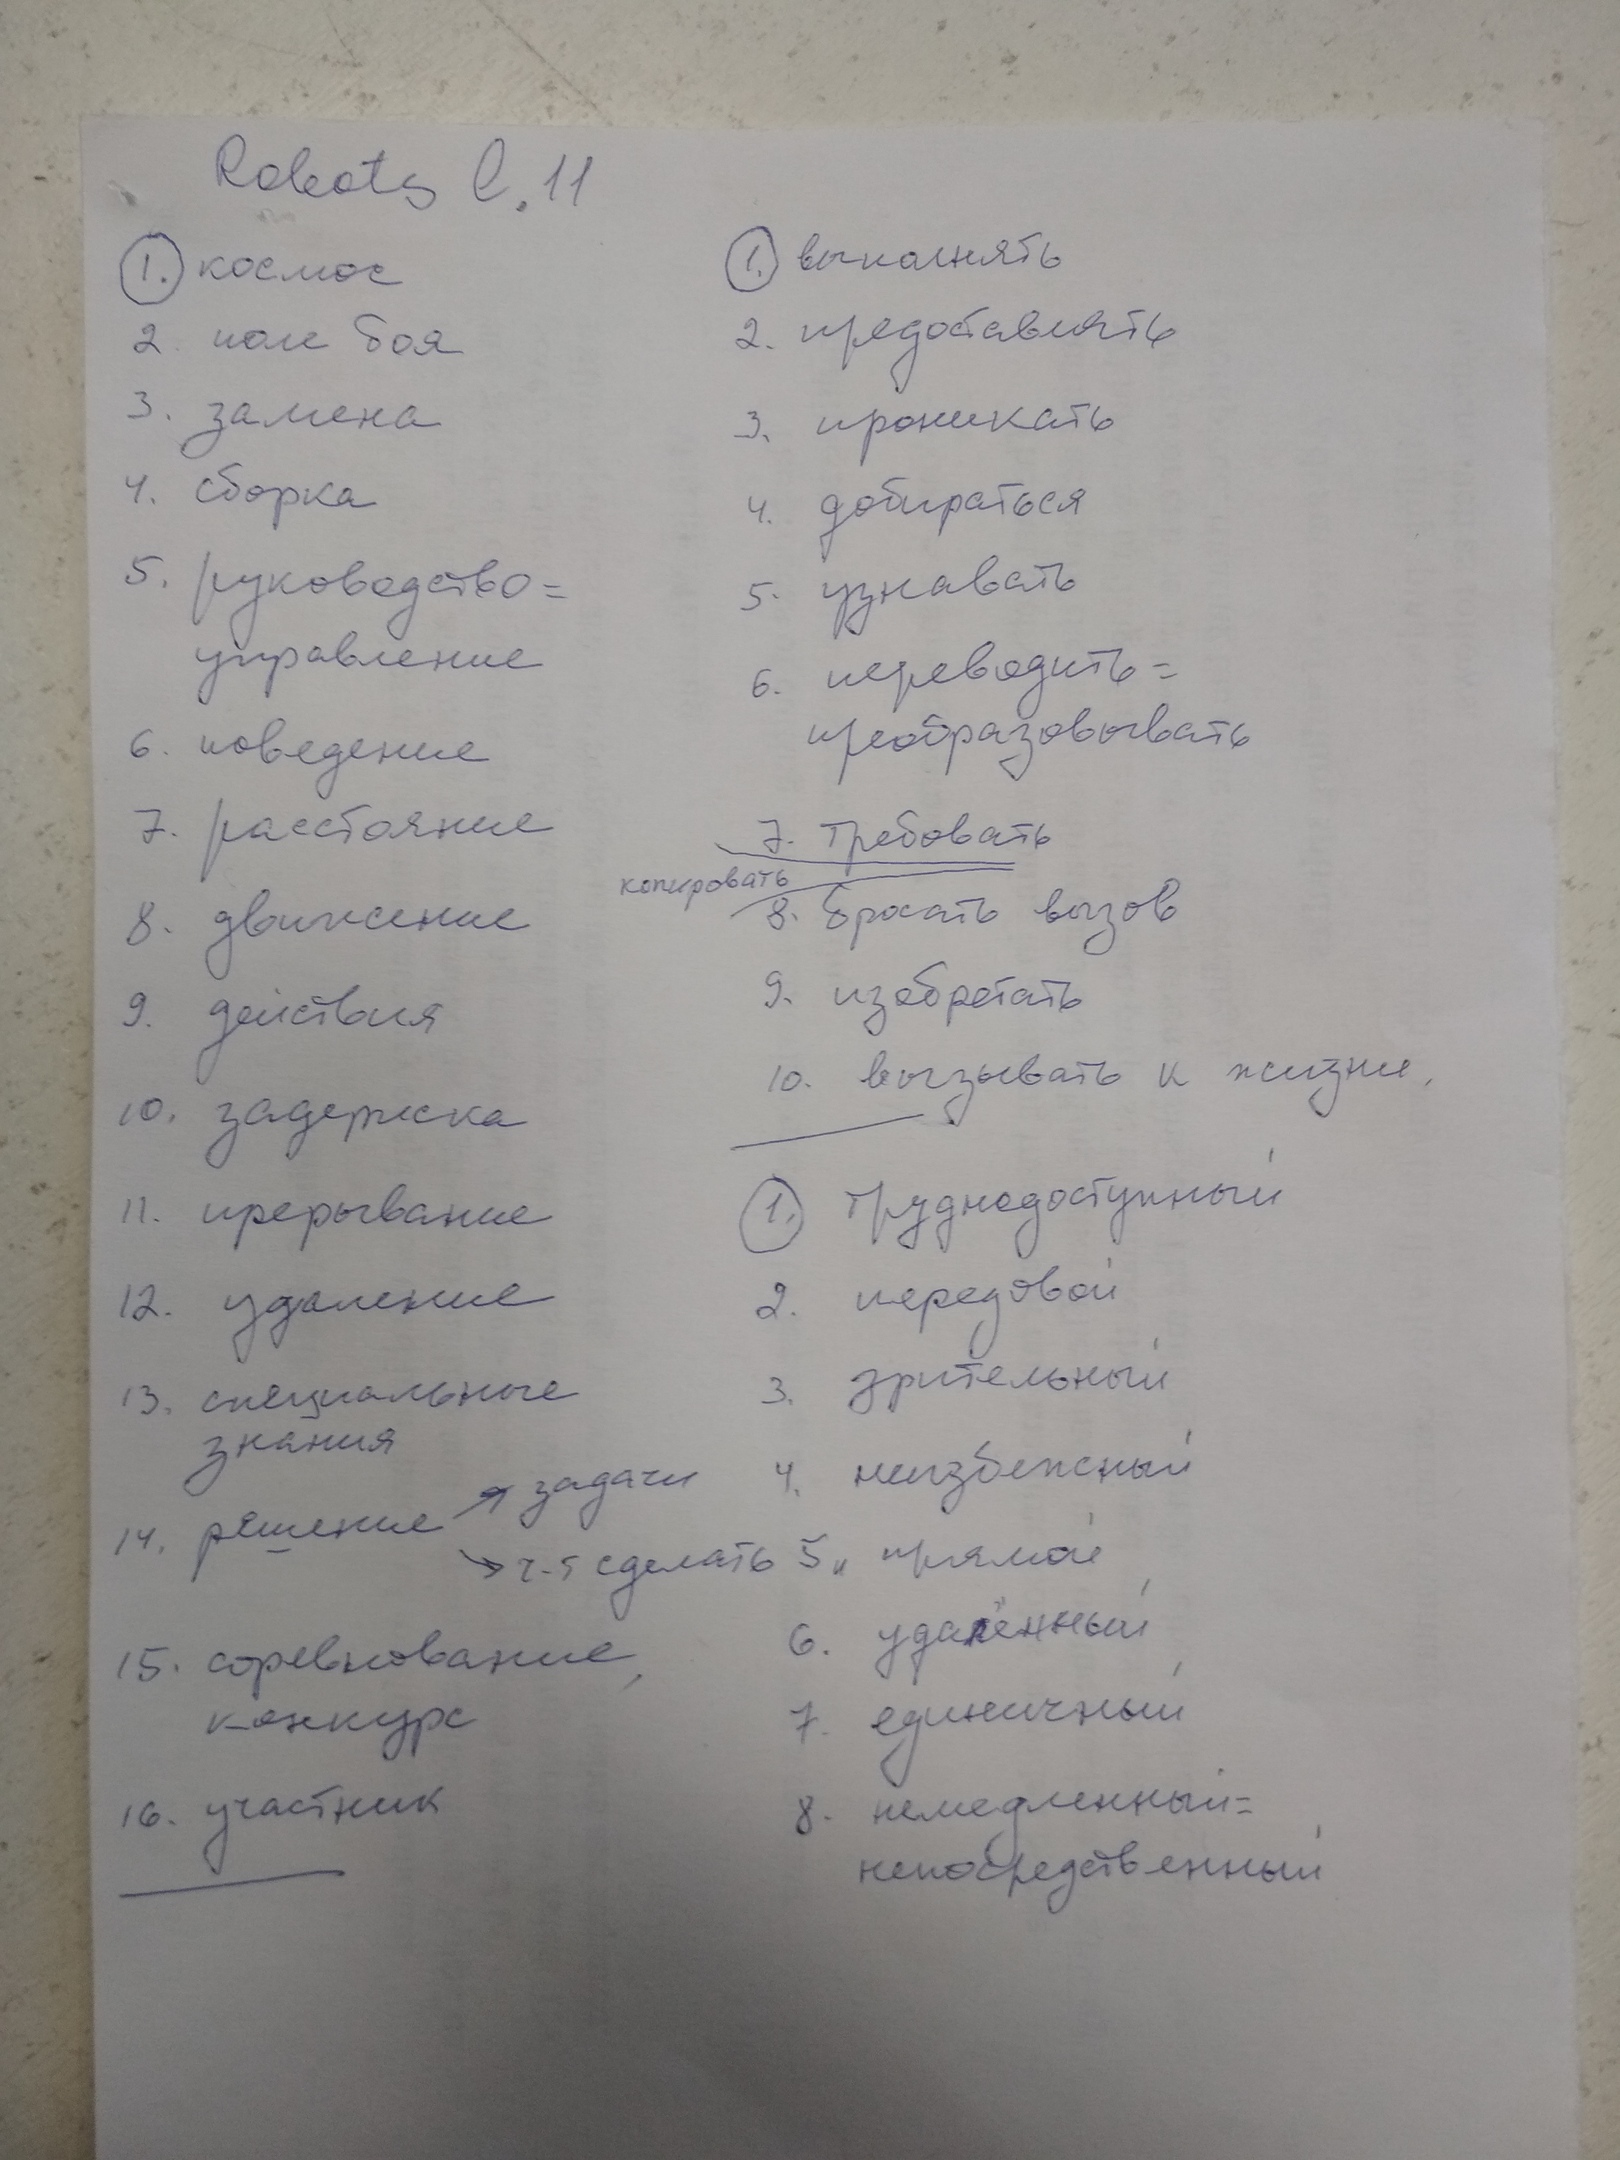 Robots C.11
1. космос
2. поле боя
3. замена
4. сборка
5. руководство=
управление
6. поведение
7. расстояние
8. движение
9. действия
10. задержка
11. прерывание
12. удаление
13. специальные
знания
14. решение → задачи
→ ч-т сделать
15. соревнование,
конкурс
16. участник
1. выполнять
2. предоставлять
3. проникать
4. добираться
5. узнавать
6. переводить=
преобразовывать
7. требовать
копировать
8. бросать вызов
9. изобретать
10. вызывать к жизни.
1. труднодоступный
2. передовой
3. зрительный
4. неизбежный
5. прямой
6. удалённый
7. единичный
8. немедленный=
непосредственный